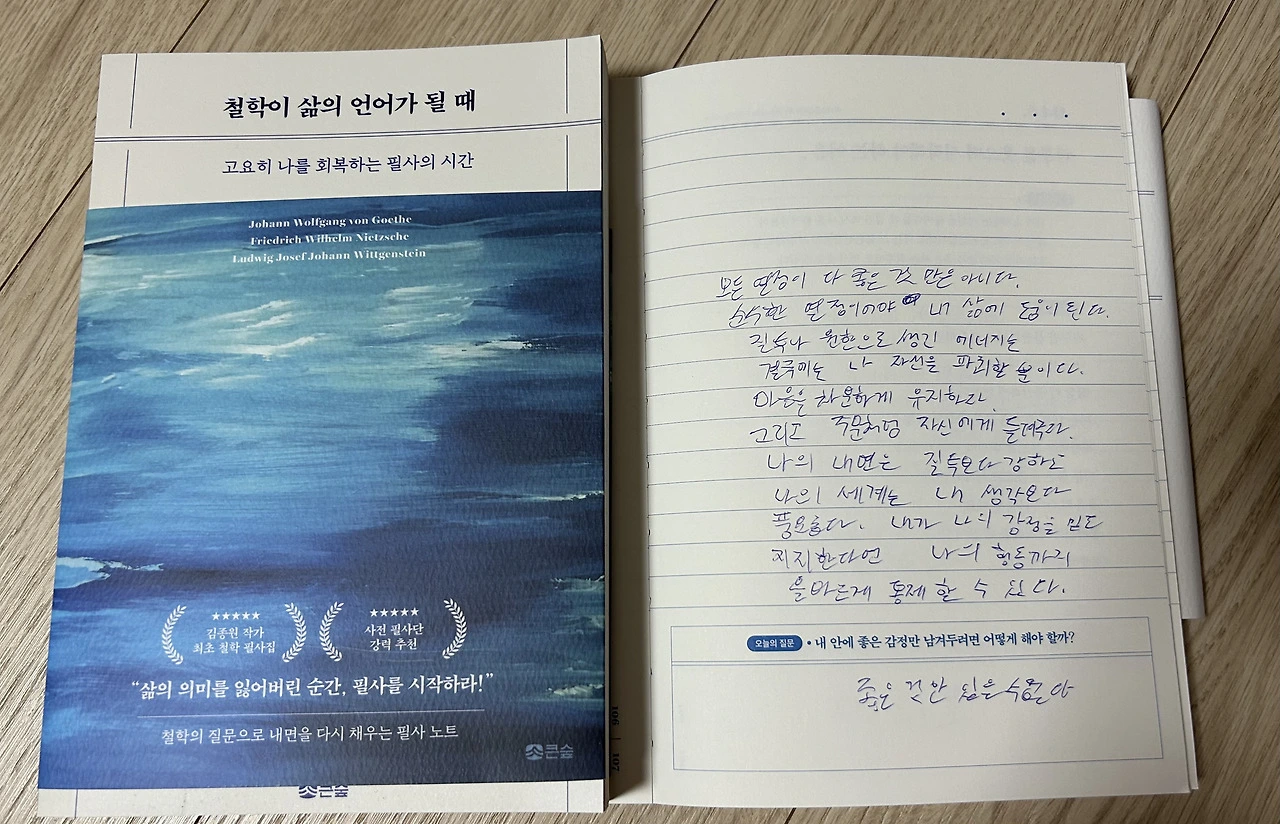 철학이 삶의 언어가 될 때
고요히 나를 회복하는 필사의 시간
Johann Wolfgang von Goethe
Friedrich Wilhelm Nietzsche
Ludwig Josef Johann Wittgenstein
★★★★★
김종원 작가
최초 철학 필사집
★★★★★
사전 필사단
강력 추천
“삶의 의미를 잃어버린 순간, 필사를 시작하라!”
철학의 질문으로 내면을 다시 채우는 필사 노트
큰숲
큰숲
106 | 107
모든 열정이 다 좋은 것 만은 아니다.
순수한 열정이어야 내 삶에 돔이 된다.
질투나 원한으로 생긴 에너지는
결국에는 나 자신을 파괴할 뿐이다.
마음을 차분하게 유지하라.
그리고 주문처럼 자신에게 들려주라.
나의 내면은 질투보다 강하고
나의 세계는 내 생각보다
풍요롭다. 내가 나의 감정을 믿고
지지한다면 나의 행동까지
올바르게 통제 할 수 있다.
오늘의 질문 • 내 안에 좋은 감정만 남겨두려면 어떻게 해야 할까?
좋은 것만 있을 수 없다